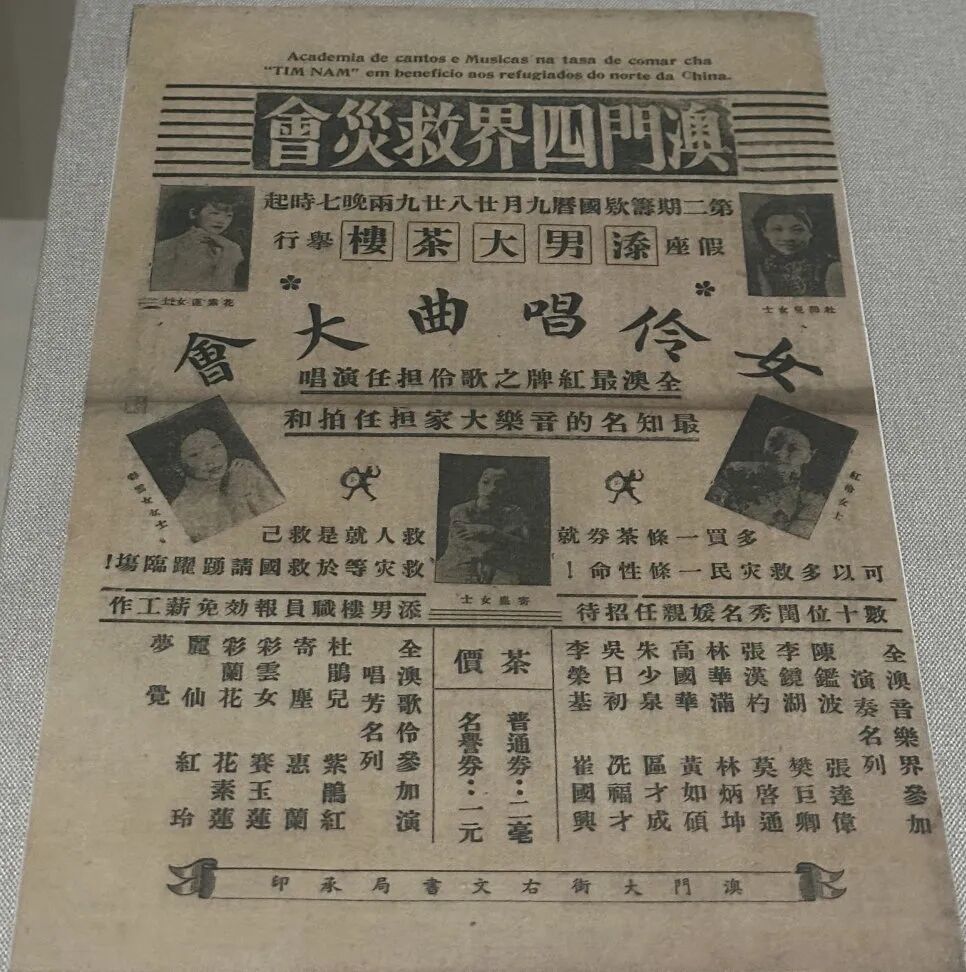 Academia de cantos e Musicas na tasa de comar cha
"TIM NAM" em beneficio aos refugiados do norte da China.
澳門四界救災會
第二期籌欵國曆九月廿八廿九兩晚七時起
假座添男大茶樓舉行
杜鵑兒女士
花素蓮女士
女伶唱曲大會
全澳最紅牌之歌伶担任演唱
最知名的音樂大家担任拍和
寄塵女士
多買一條茶券就
可以多救灾民一條性命!
救人就是救己
救灾等於救國請踴躍臨塲!
數十位閨秀名媛親任招待
添男樓職員報効免薪工作
全澳音樂界參加
演奏名列
陳鑑波 張達偉
李鏡湖 樊巨卿
張漢杓 莫啓通
林華滿 林炳坤
高國華 黃如碩
朱少泉 區才成
吳日初 冼福才
李榮基 崔國興
茶價
普通券:二毫
名譽券:一元
全澳歌伶參加演
唱芳名列
杜鵑兒 紫鵑紅
寄塵 惠蘭
彩雲女 賽玉蓮
彩蘭花 花素蓮
麗仙 紅玲
夢覺
澳門大街右文書局承印